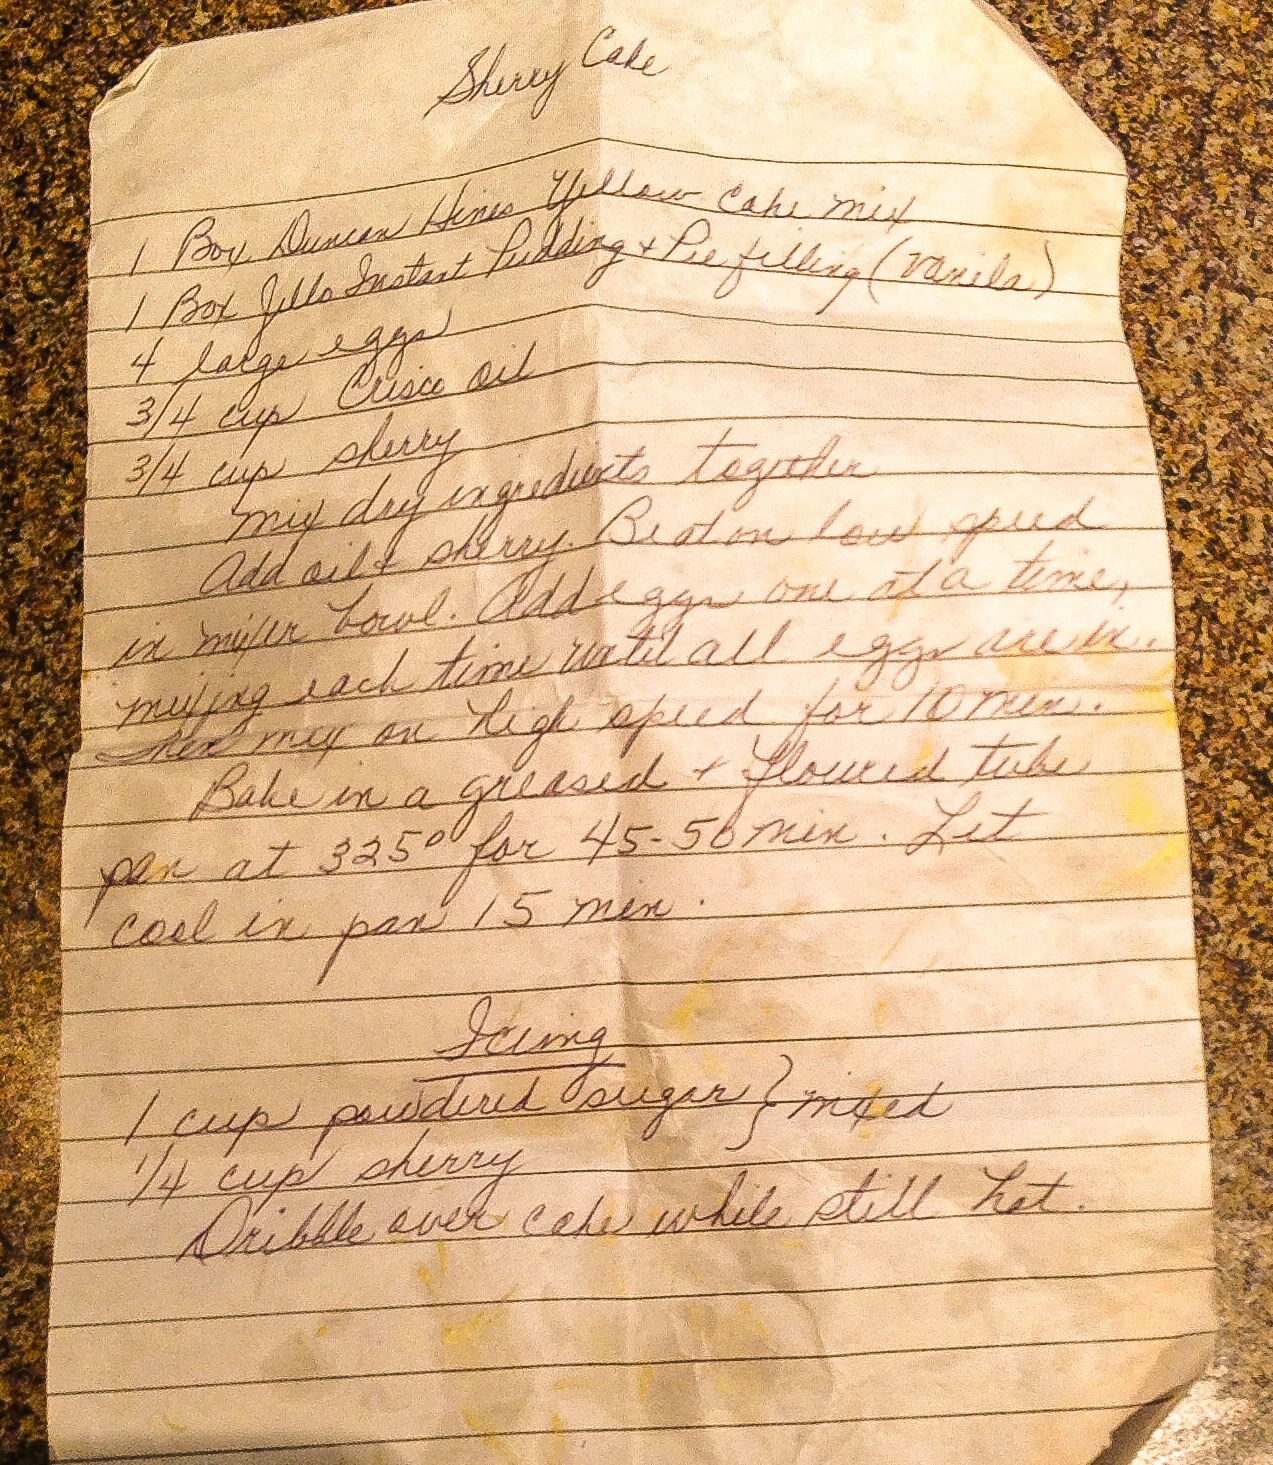 Sherry Cake
1 Box Duncan Hines Yellow Cake mix
1 Box Jello Instant Pudding & Pie filling (Vanila)
4 large eggs
3/4 cup Crisco oil
3/4 cup sherry
Mix dry ingredients together
Add oil & sherry. Beat on low speed
in mixer bowl. Add eggs one at a time,
mixing each time until all eggs are in.
Then mix on high speed for 10 min.
Bake in a greased & floured tube
pan at 325° for 45-50 min. Let
cool in pan 15 min.
Icing
1 cup powdered sugar } mixed
1/4 cup sherry
Dribble over cake while still hot.